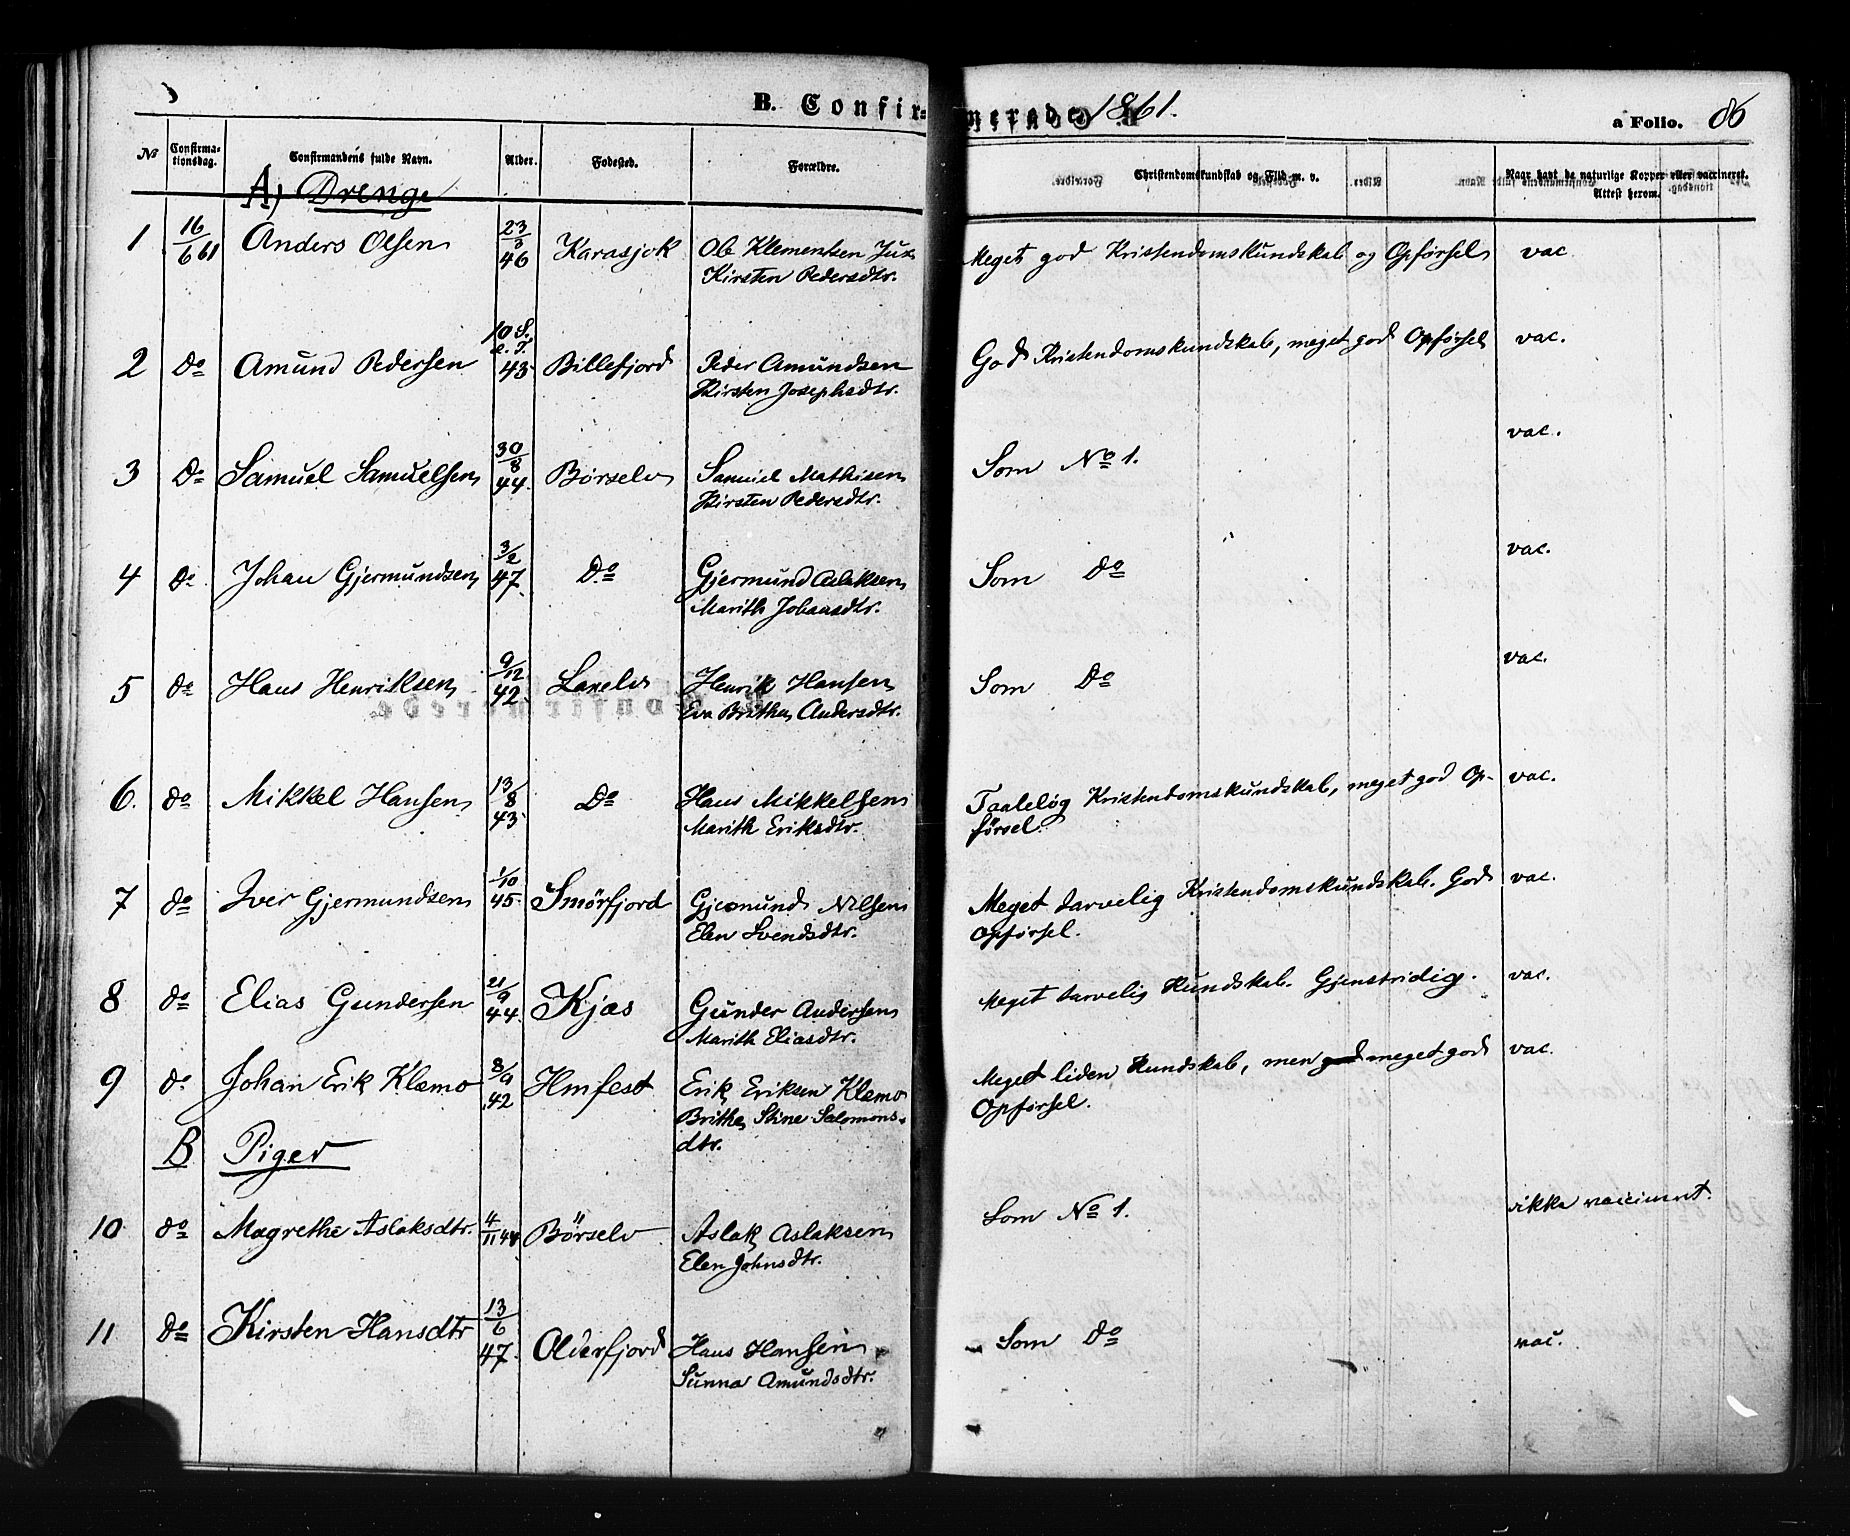 B. Confirmerede 1861. a Folio. 86
No Confirmationsdag. Confirmandens fulde Navn. Alder. Fødested. Forældre. Christendomskundskab og Flid m. v. Naar havt de naturlige Kopper eller vaccineret. Attest herom.
A) Drenge
1 16/6 61 Anders Olsen 23/3 46 Karasjok Ole Klementsen Jux Meget god Kristendomskundskab og Opførsel vac
Kirsten Pedersdtr.
2 Do Amund Pedersen 10 S. e. T. 43 Billefjord Peder Amundsen God Kristendomskundskab, meget god Opførsel vac.
Kirsten Josephsdtr.
3 Do Samuel Samuelsen 30/8 44. Børselv Samuel Mathisen Som No 1. vac.
Kirsten Pedersdtr.
4 Do Johan Gjermundsen 3/2 47. Do Gjermund Aslaksen Som Do vac.
Marith Johansdtr.
5 Do Hans Henriksen 9/12 42. Laxelv Henrik Hansen Som Do vac.
Eva Brithe Andersdtr.
6. Do Mikkel Hansen 13/8 43. Do Hans Mikkelsen Taaleløg Kristendomskundskab, meget god Op- vac.
Marith Eriksdtr. førsel.
7 Do Iver Gjermundsen 1/10 45. Smørfjord Gjermund Nilsen Meget tarvelig Kristendomskundskab. God vac.
Elen Svendsdtr. Opførsel.
8 Do Elias Gundersen 21/9 44. Kjæs Gunder Andersen Meget tarvelig Kundskab. Gjenstridig. vac.
Marith Eliasdtr.
9 Do Johan Erik Klæmo 8/9 42 Hmfest Erik Eriksen Klæmo Meget liden Kundskab, men god meget god vac.
Brithe Stine Salomons- Opførsel.
dtr.
B Piger
10 Do Magrethe Aslaksdtr. 4/11 44 Børselv Aslak Aslaksen Som No 1. ikke vaccineret.
Elen Johnsdtr.
11 Do Kirsten Hansdtr 13/6 47. Olderfjord Hans Hansen Som Do vac.
Sunna Amundsdtr.